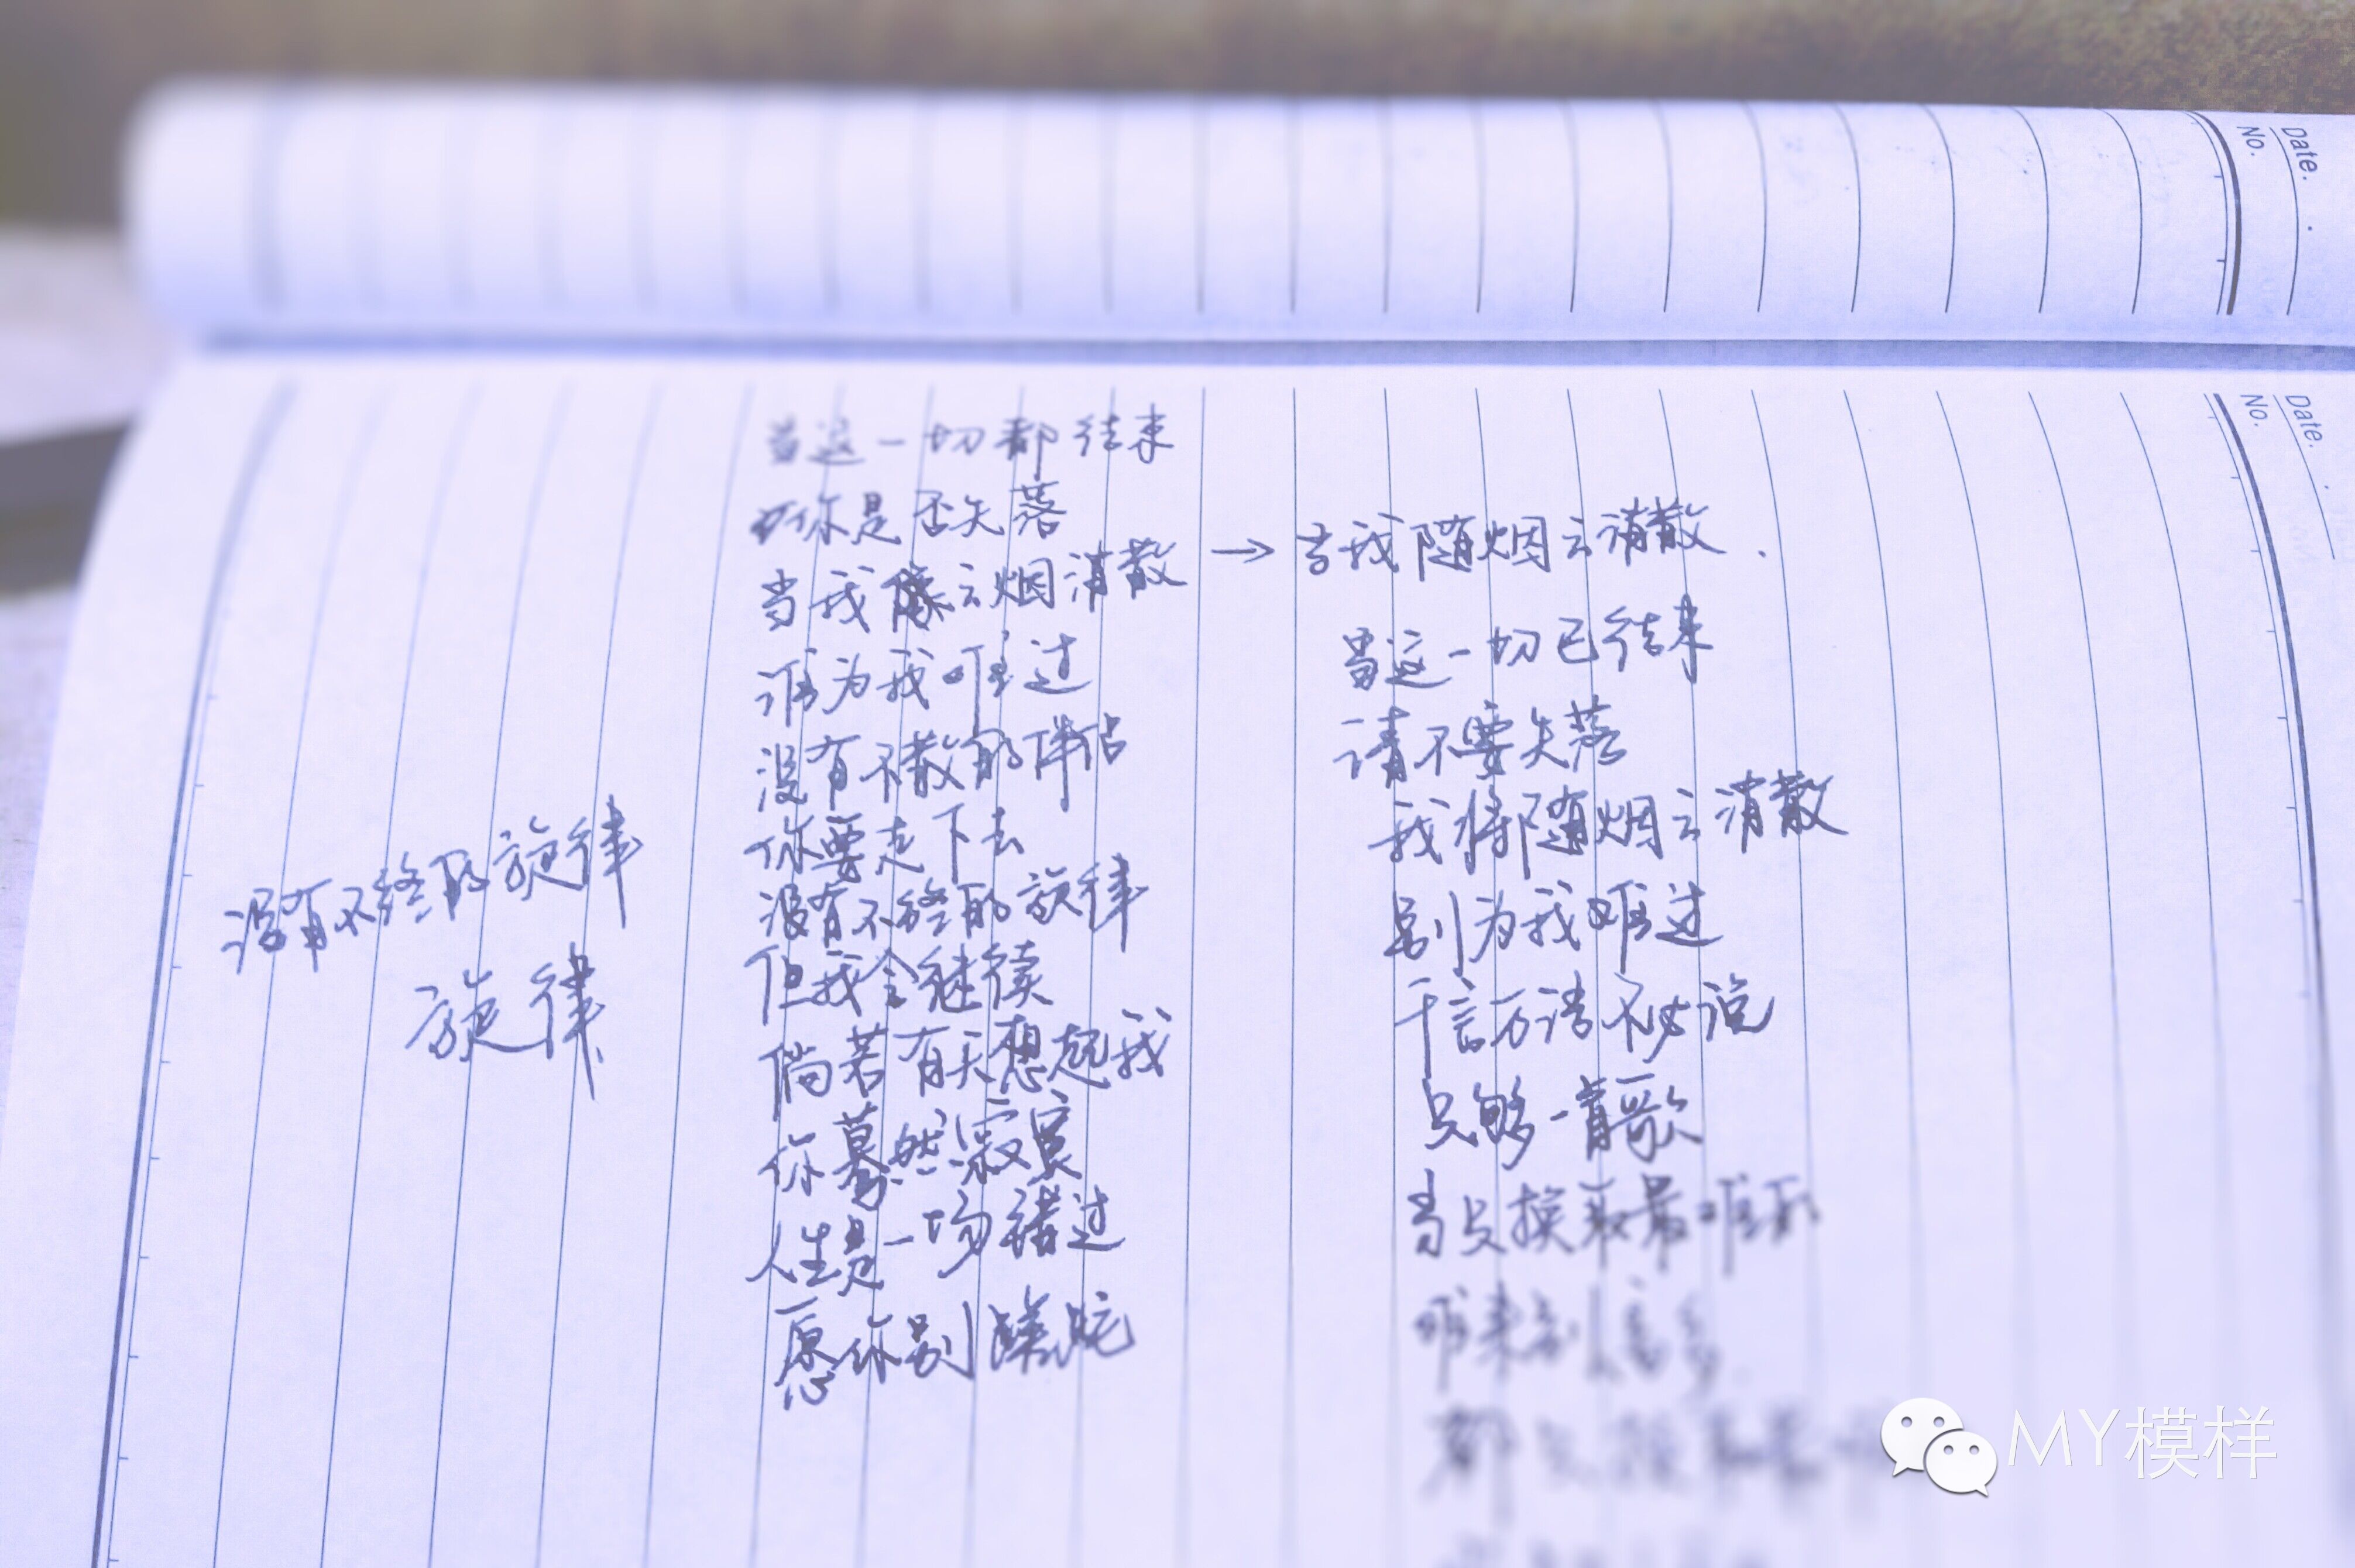 Date.
No.
Date.
No.
当这一切都结束
你是否失落
当我像云烟消散
谁为我难过
没有不散的伴侣
你要走下去
没有不终的旋律
但我会继续
倘若有天想起我
你蓦然寂寞
人生是一场错过
愿你别蹉跎
没有不终的旋律
旋律
→ 当我随烟云消散.
当这一切已结束
请不要失落
我将随烟云消散
别为我难过
千言万语不必说
只够一首歌
MY模样